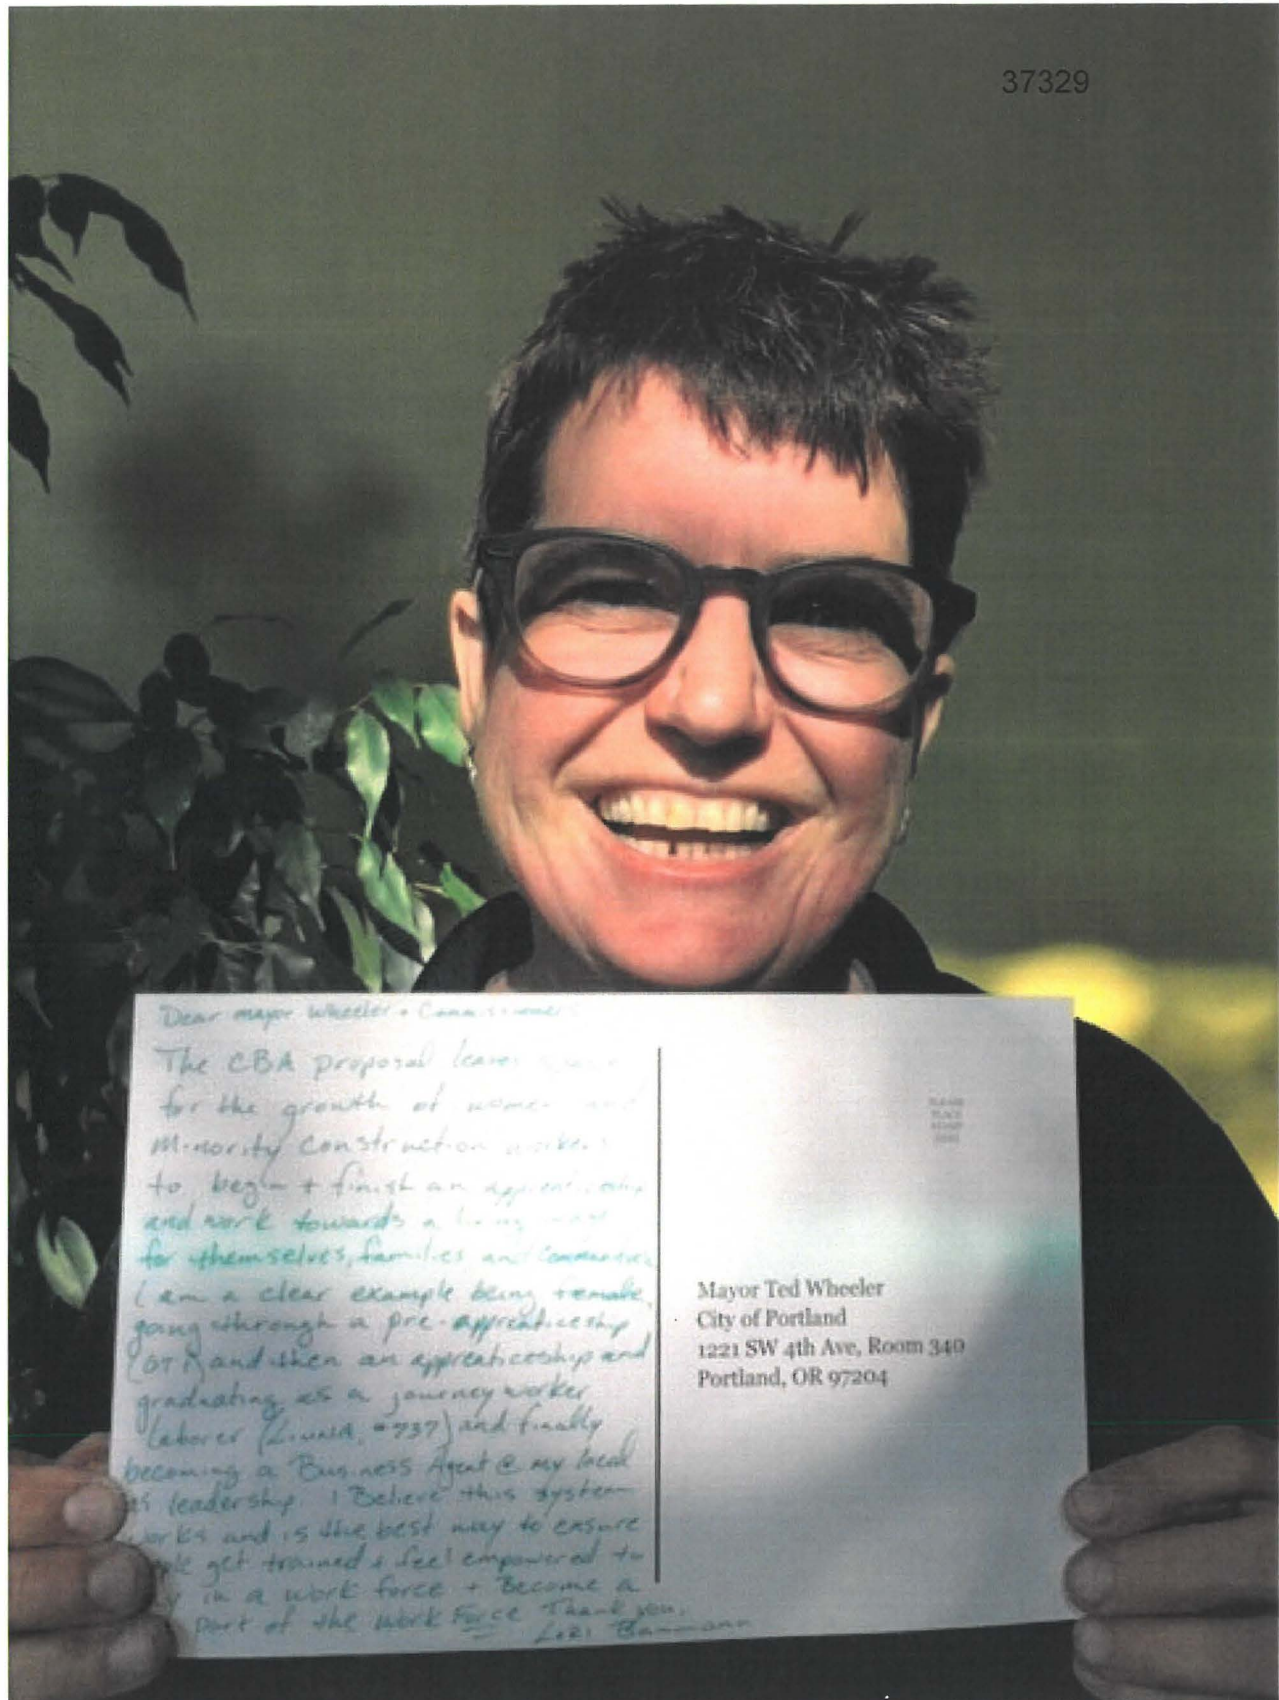 37329
Dear mayor Wheeler + Commissioners
The CBA proposal leaves
for the growth of women and
Minority Construction workers
to begin + finish an apprenticeship
and work towards a living
for themselves, families and Communities
I am a clear example being female,
going through a pre-apprenticeship
(OTI) and then an apprenticeship and
graduating as a journey worker
laborer (LiUNA, #737) and finally
becoming a Business Agent @ my local
as leadership. I Believe this system
works and is the best way to ensure
get trained + feel empowered to
in a work force + Become a
Part of the Work Force Thank you,
Lori Baumann
PLEASE
PLACE
STAMP
HERE
Mayor Ted Wheeler
City of Portland
1221 SW 4th Ave, Room 340
Portland, OR 97204